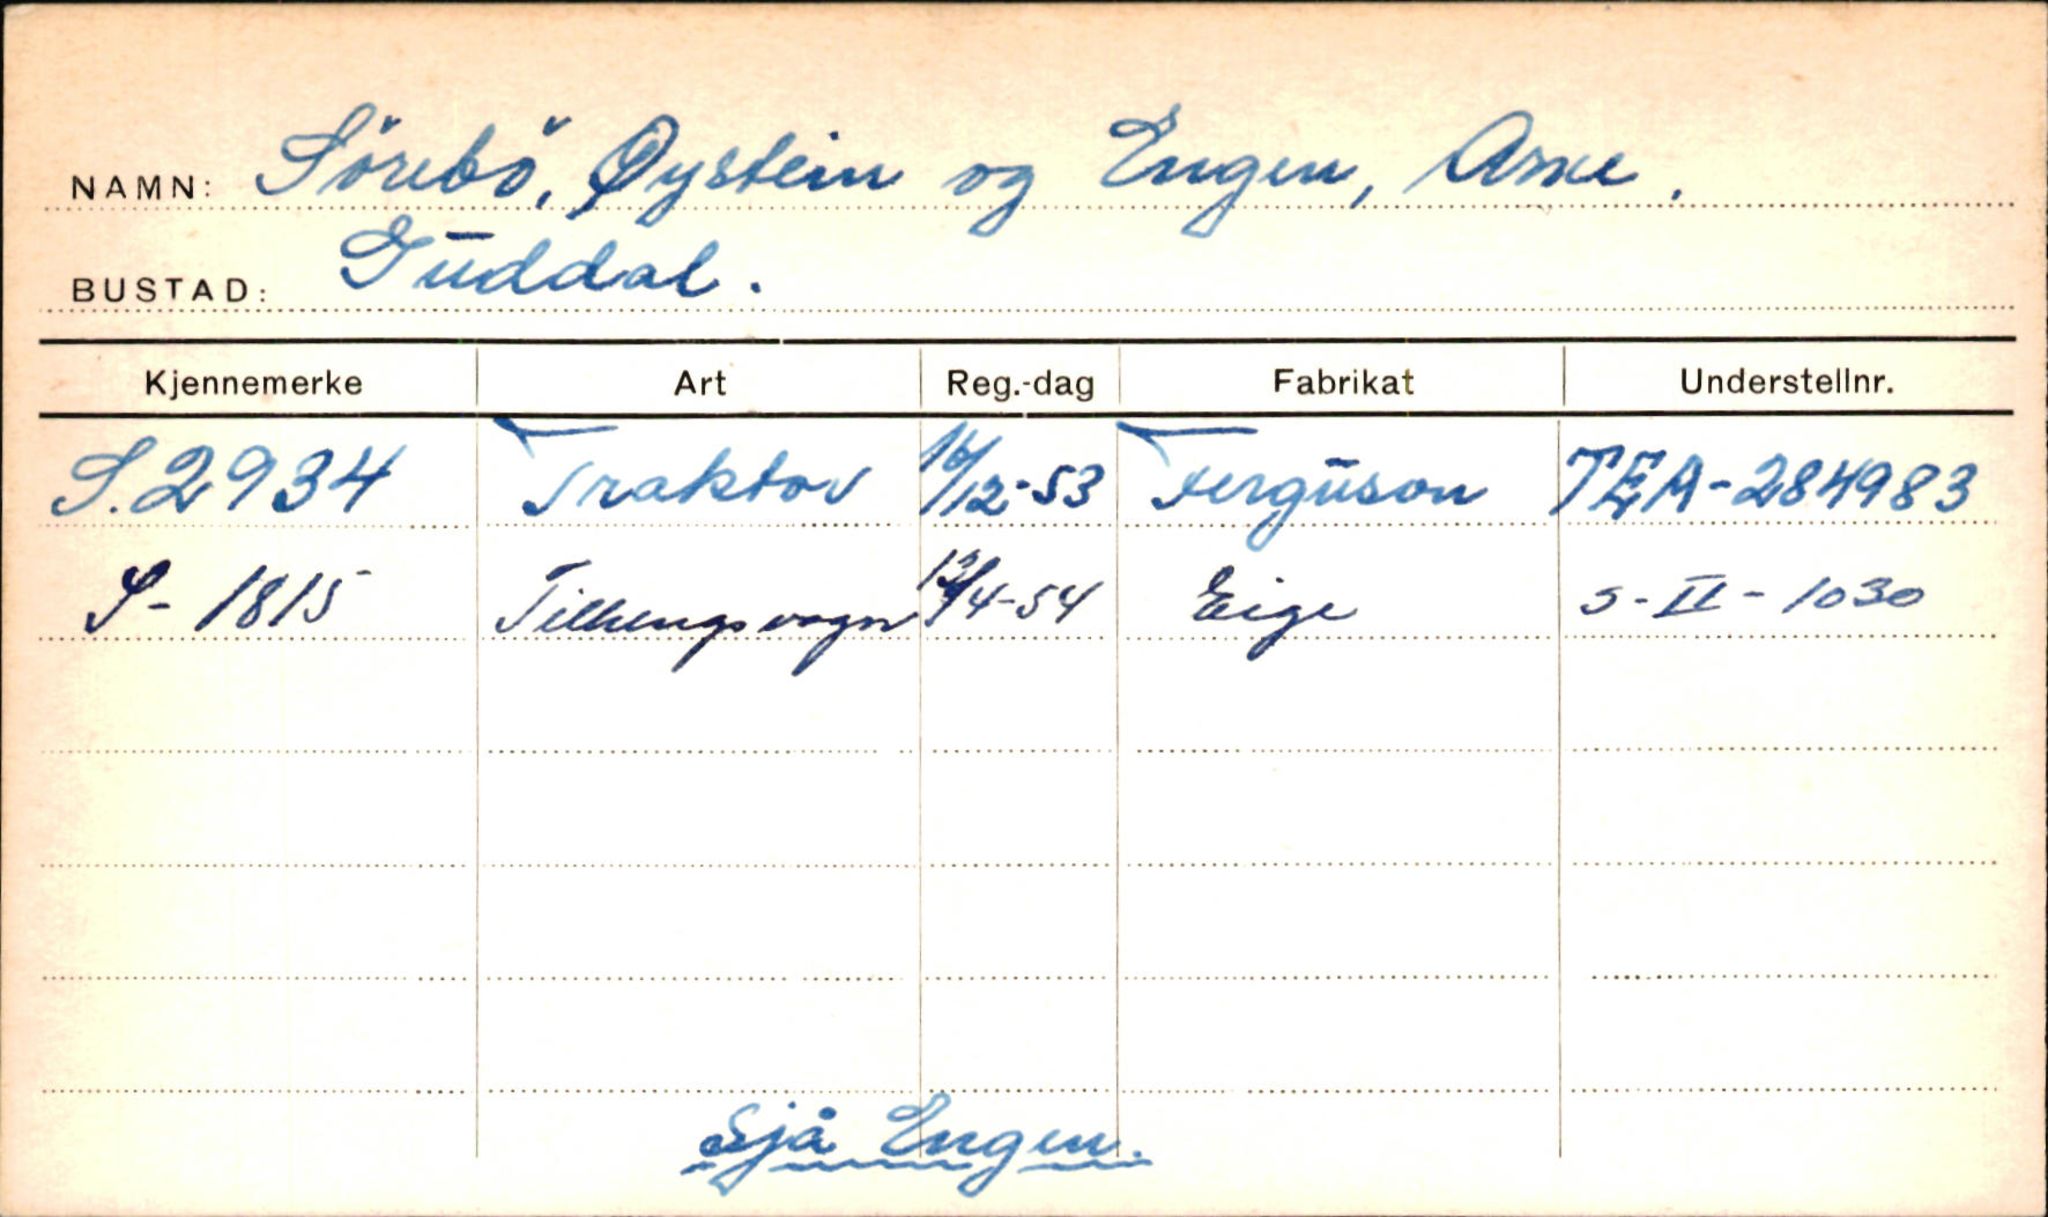 NAMN: Sörebö, Øystein og Engen, Arne.
BUSTAD: Guddal.
Kjennemerke Art Reg.-dag Fabrikat Understellnr.
S. 2934 Traktor 16/12-53 Ferguson TEA-284983
S- 1815 Tilhengsvogn /4-54 Eige S-II-1030
Sjå Engen.